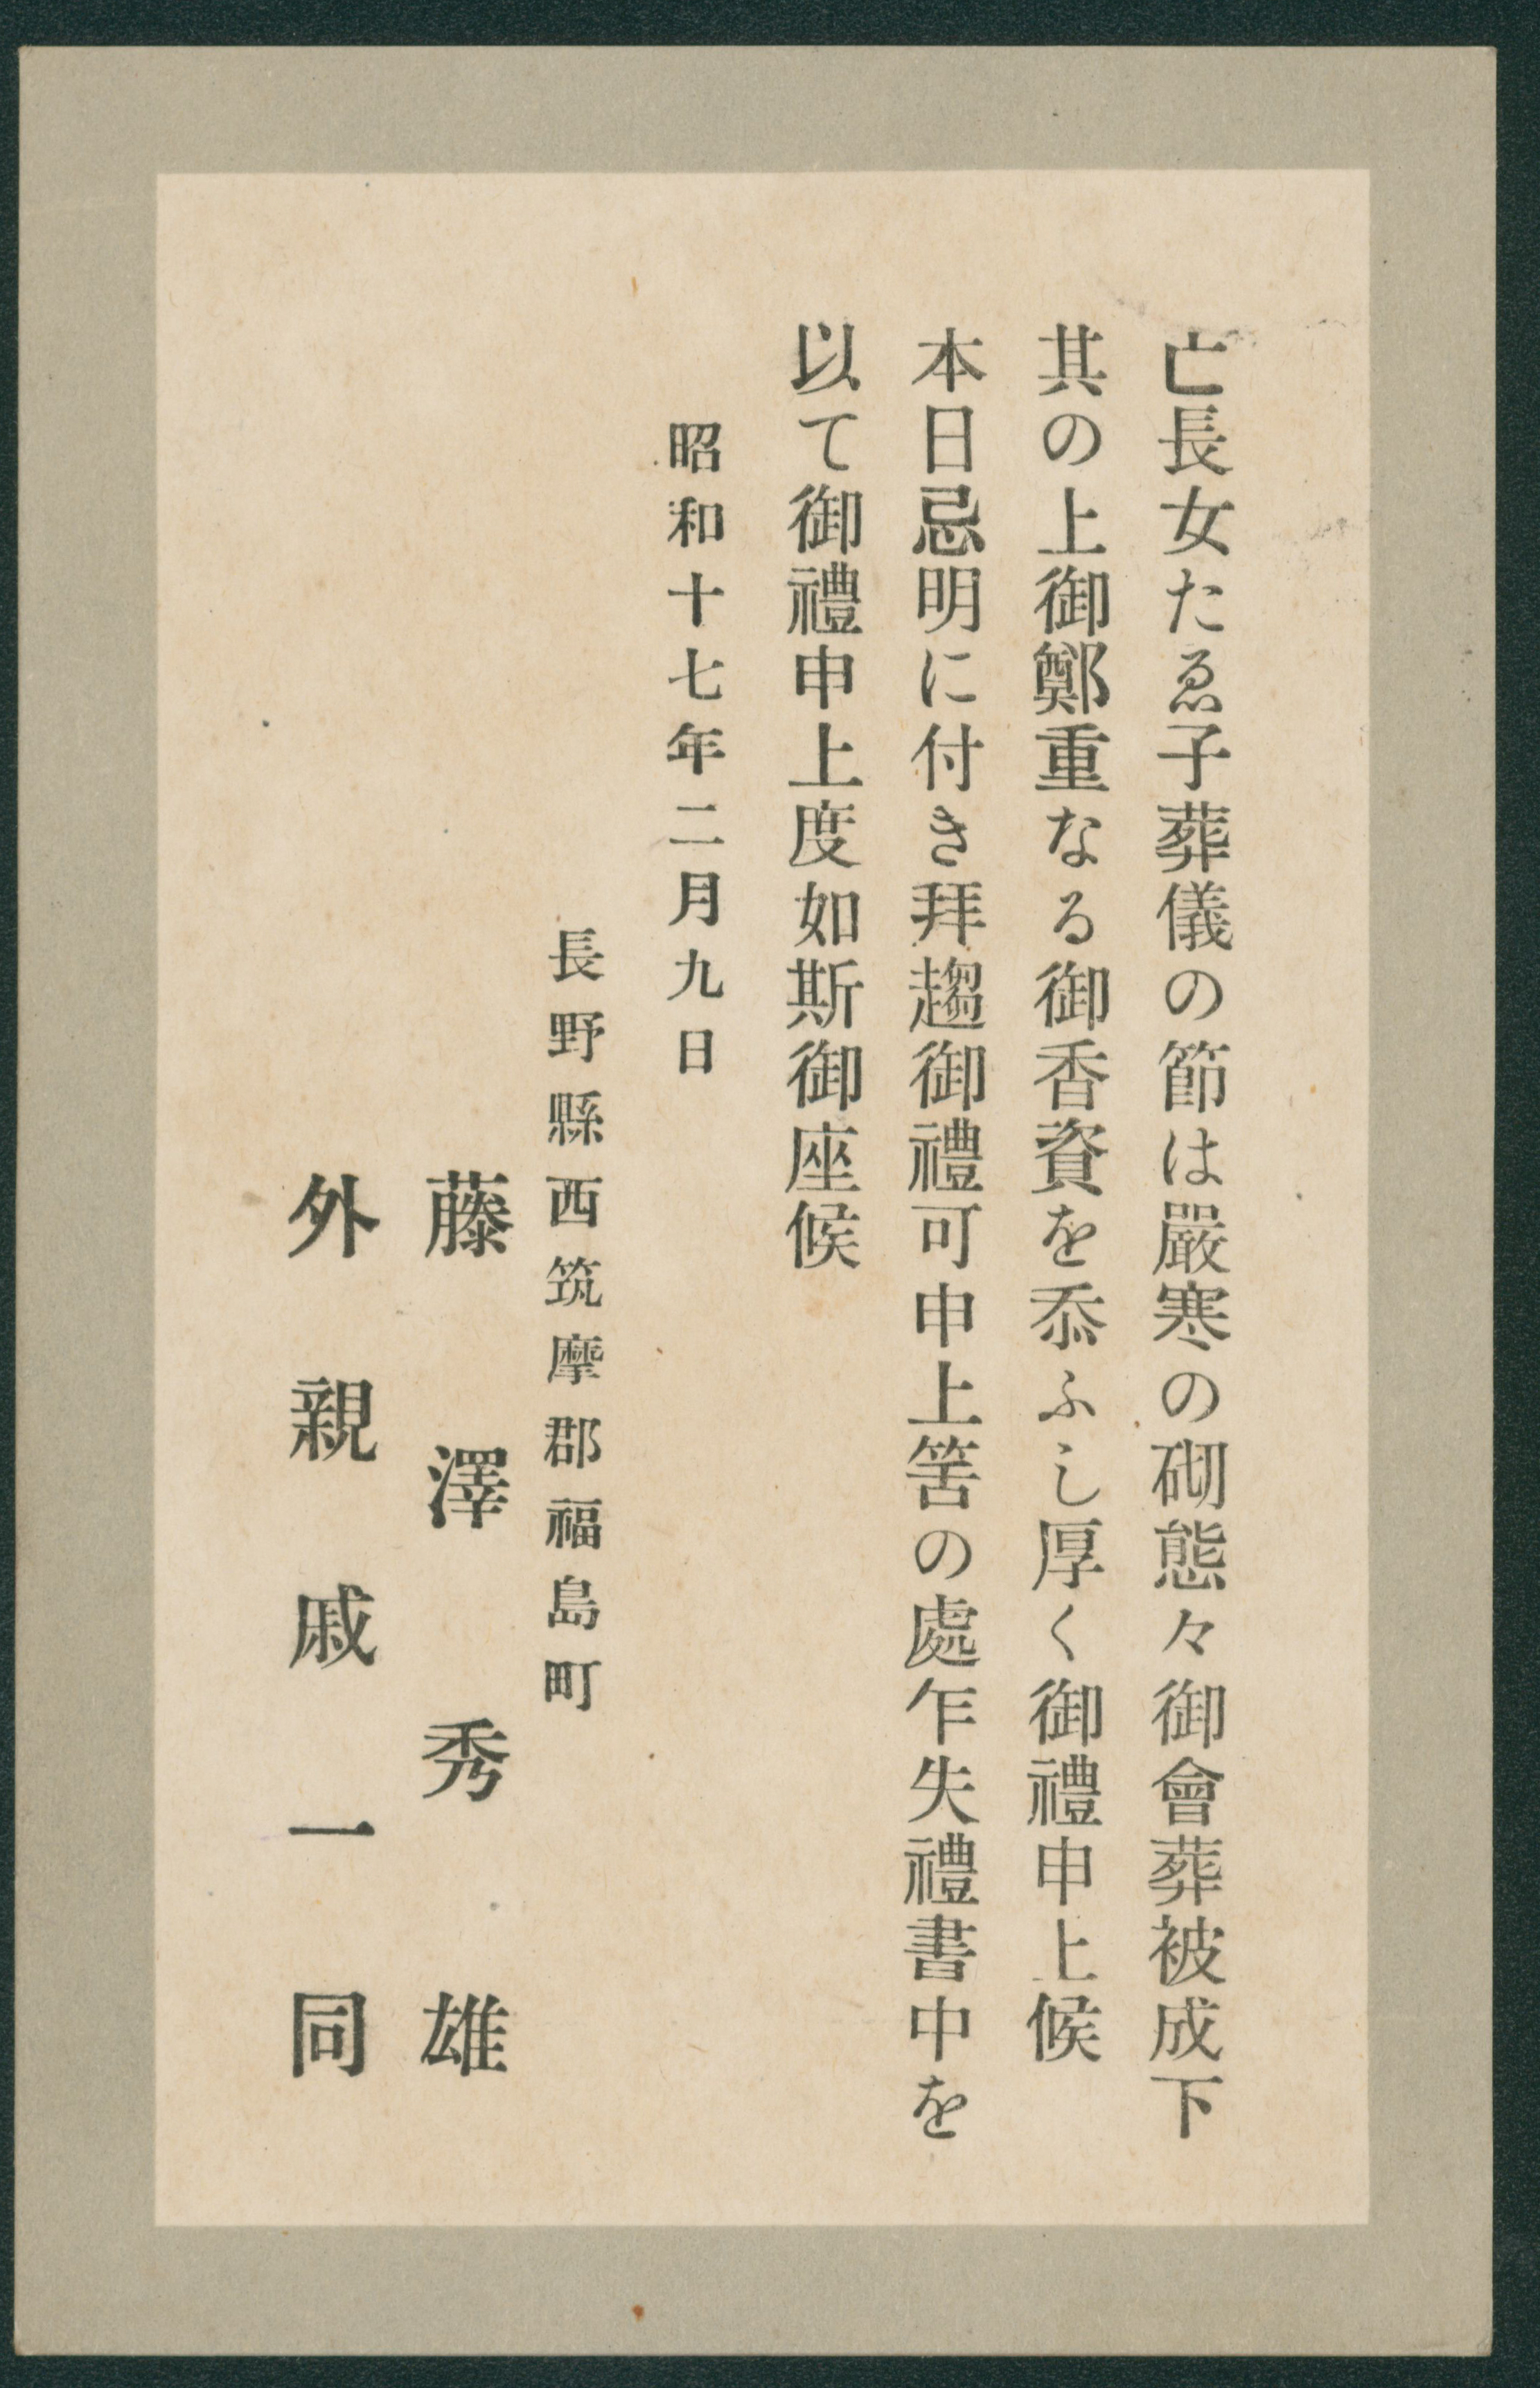 亡長女たゑ子葬儀の節は嚴寒の砌態々御會葬被成下
其の上御鄭重なる御香資を忝ふし厚く御禮申上候
本日忌明に付き拜趨御禮可申上筈の處乍失禮書中を
以て御禮申上度如斯御座候
昭和十七年二月九日
長野縣西筑摩郡福島町
藤澤秀雄
外親戚一同